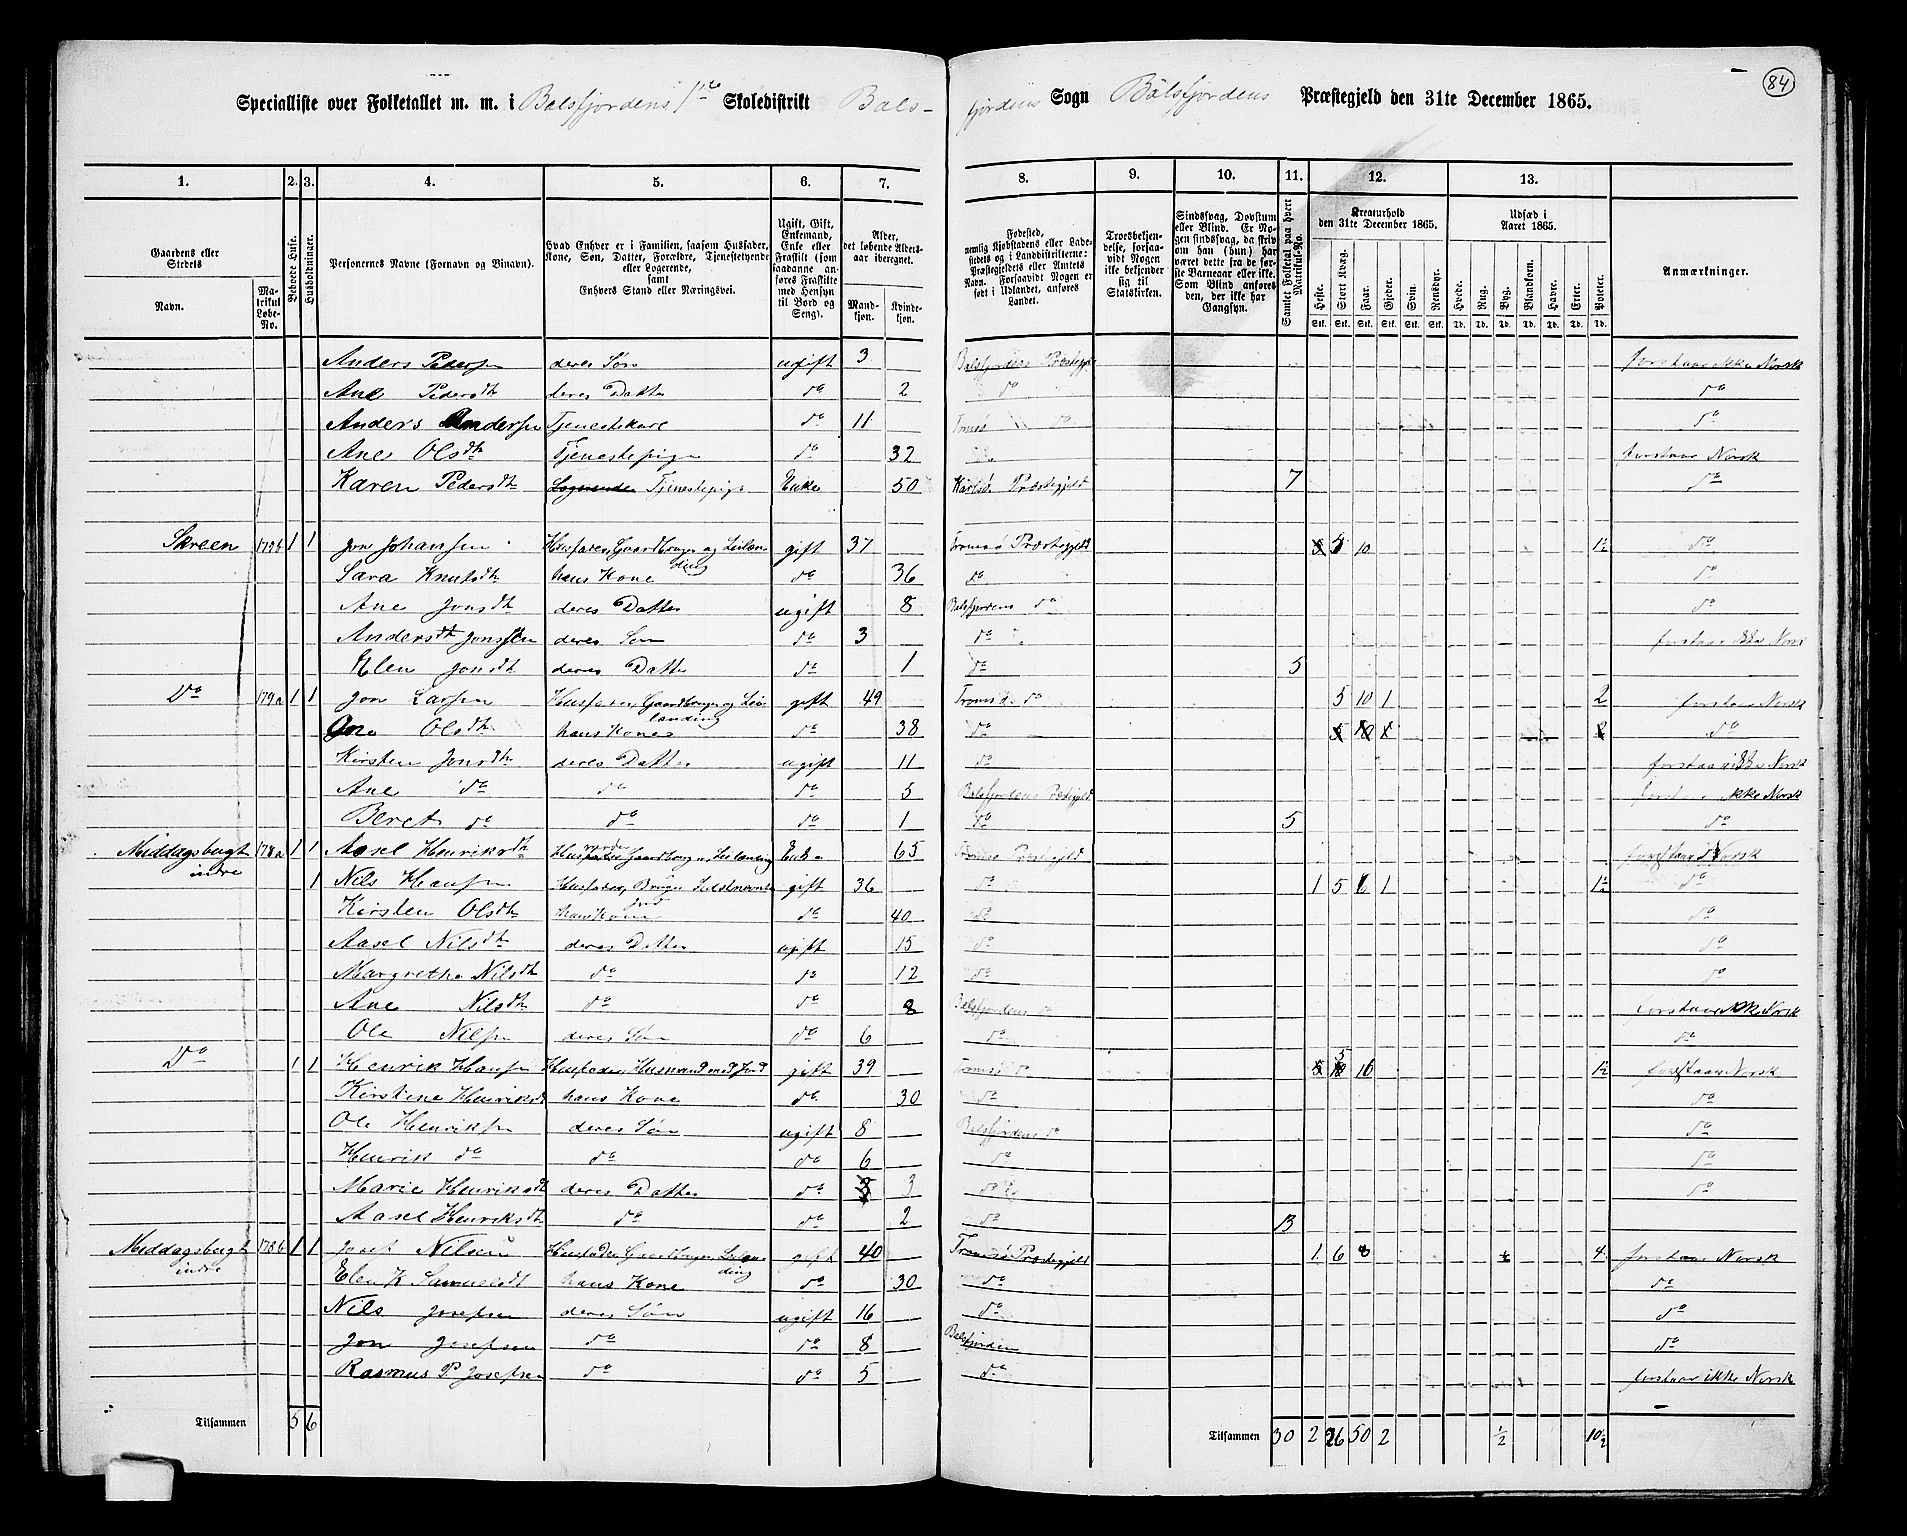 84
Specialliste over Folketallet m. m. i Balsfjordens 1ste Skoledistrikt Bals-
fjordens Sogn Balsfjordens Præstegjeld den 31te December 1865.
1. 2. 3. 4. 5. 6. 7. 8. 9. 10. 11. 12. 13.
Gaardens eller Stedets
Navn.
Matrikul Løbe-No.
Beboede Huse.
Husholdninger.
Personernes Navne (Fornavn og Binavn).
Hvad Enhver er i Familien, saasom Husfader, Kone, Søn, Datter, Forældre, Tjenestetyende eller Logerende, samt Enhvers Stand eller Næringsvei.
Ugift, Gift, Enkemand, Enke eller Fraskilt (som saadanne anføres Fraskilte med Hensyn til Bord og Seng).
Alder, det løbende Aldersaar iberegnet.
Mandkjøn.
Kvindekjøn.
Fødested, nemlig Kjøbstadens eller Ladestedets og i Landdistrikterne: Præstegjeldets eller Amtets Navn. Forsaavidt Nogen er født i Udlandet, anføres Landet.
Troesbekjendelse, forsaavidt Nogen ikke bekjender sig til Statskirken.
Sindssvag, Døvstum eller Blind. Er Nogen sindssvag, da skrives om han (hun) har været dette fra de første Barneaar eller ikke. Som Blind anføres den, der ikke har Gangsyn.
Samlet Folketal paa hvert Matrikul-No.
Kreaturhold den 31te December 1865.
Heste. Stort Kvæg. Faar. Gjeder. Svin. Rensdyr.
Stk. Stk. Stk. Stk. Stk. Stk.
Udsæd i Aaret 1865.
Hvede. Rug. Byg. Blandkorn. Havre. Erter. Poteter.
Td. Td. Td. Td. Td. Td. Td.
Anmærkninger.
Anders Pedersen deres Søn ugift 3 Balsfjordens Præstegjeld forstaar ikke Norsk
Ane Pedersdtr deres Datter do 2 do do
Anders Andersen Tjenestekarl do 11 Tromsø do do
Ane Olsdtr Tjenestepige do 32 forstaar Norsk
Karen Pedersdtr Logerende Tjenestepige Enke 50 Karlsø Præstegjeld 7 do
Skreen 179b 1 1 Jon Johansen Husfader, Gaardbruger og Leilænding gift 37 Tromsø Præstegjeld 10 1½ do
Sara Knutsdtr hans Kone do 36 do do
Ane Jonsdtr deres Datter ugift 8 Balsfjordens do do
Anders Jonssen deres Søn do 3 do forstaar ikke Norsk
Elen Jonsdtr deres Datter do 1 do 5
Do 179a 1 1 Jon Larsen Husfader, Gaardbruger og Leilænding gift 49 Tromsø do 5 10 1 2 forstaar Norsk
Olsdtr hans Kone do 38 do 5 10 1 2 do
Kirsten Jonsdtr deres Datter ugift 11 do forstaar ikke Norsk
Ane do do do 5 Balsfjordens Præstegjeld forstaar ikke Norsk
Beret do do do 1 do 5 do
Middagsbugt indre 178a 1 1 Aasel Henriksdtr Husmoder Gaardbruger, Leilænding Enke 65 Tromsø Præstegjeld forstaar Norsk
1 Nils Hansen Husfader, Bruger gift 36 do 1 5 1 1½ do
Kirsten Olsdtr hans Kone do 40 do do
Aasel Nilsdtr deres Datter ugift 15 do do
Margrethe Nilsdtr do do 12 do do
Ane Nilsdtr do do 8 Balsfjordens do forstaar ikke Norsk
Ole Nilsen deres Søn do 6 do do
Do 1 1 Henrik Hansen Husfader, Husmand med Jord gift 39 Tromsø do 5 1½ forstaar Norsk
Kirstine Henriksdtr hans Kone do 30 do do
Ole Henriksen deres Søn ugift 8 Balsfjordens do do
Henrik do do do 6 do do
Marie Henriksdtr deres Datter do 3 do do
Aasel Henriksdtr do do 2 do 13
Middagsbugt indre 178b 1 1 Josef Nilsen Husfader Gaardbruger, Leilænding gift 40 Tromsø Præstegjeld 1 6 8 ½ 4 forstaar Norsk
Elen K Samuelsdt hans Kone do 30 do do
Nils Josefsen deres Søn ugift 16 do do
Jon Josefsen do do 8 Balsfjorden do
Rasmus P Josefsen do do 5 do forstaar ikke Norsk
Tilsammen 5 6 Tilsammen 30 2 26 50 2 ½ 10½